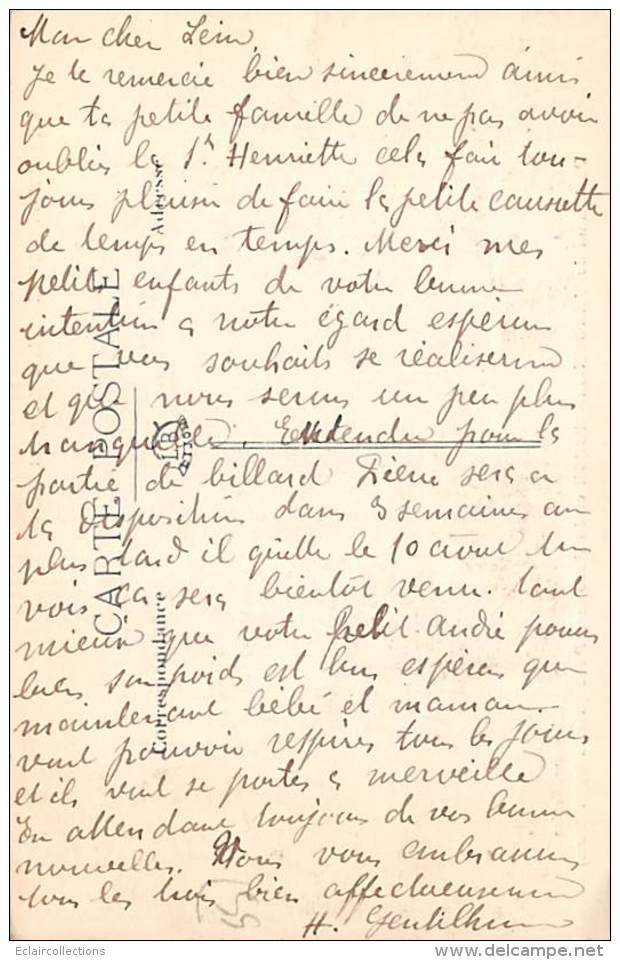 Mon cher
Je te remercie bien sincèrement ainsi
que ta petite famille de ne pas avoir
oublié la St Henriette cela fait tou-
jours plaisir de faire la petite causette
de temps en temps. Merci mes
petits enfants de votre bonne
intention a notre égard espérons
que vos souhaits se réaliseront
et que nous serons un peu plus
tranquilles. Entendu pour la
partie de billard Pierre sera a
ta disposition dans 3 semaines au
plus tard il quitte le 10 avout tu
vois ça sera bientôt venu. tant
mieux que votre petit andré
bien son poids est bon espérons que
maintenant bébé et maman
vont pouvoir respirer tous les jours
et ils vont se porter a merveille
En attendant toujours de vos bonnes
nouvelles. Nous vous embrassons
tous les trois bien affectueusement
H.
CARTE POSTALE
Correspondance
Adresse
Eclaircollections